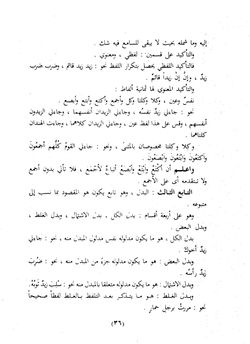 إليه وما شمله بحيث لا يبقى للسامع فيه شك .
والتأكيد على قسمين : لفظي ، ومعنوي .
فالتأكيد اللفظي يحصل بتكرار اللفظ نحو : زيد زيد قائم ، وضرب ضرب
زيدٌ ، وإنّ إنّ زيداً قائمٌ .
والتأكيد المعنوي لها ثمانية ألفاظ :
نفسٌ وعين ، وكلا وكلتا وكل ، وأجمع وأكتع وأبتع وأبصع .
نحو : جاءني زيدٌ نفسه ، وجاءني الزيدان أنفسهما ، وجاءني الزيدون
أنفسهم ، وقس على هذا لفظ عين ، وجاءني الزيدان كلاهما ، وجاءت الهندان
كلتاهما .
وكلا وكلتا مخصوصان بالمثنى ، نحو : جاءني القومُ كلُّهم أجمعون
وأكتعون وأبتعون وأبصعون .
واعلم أن أكتع وأبتع وأبصع أتباعٌ لأجمع ، فلا تأتي بدون أجمع
ولا تتقدمه أي على الأجمع .
التابع الثالث : البدل ، وهو تابع يكون هو المقصود بما نسب إلى
متبوعه .
وهو على أربعة أقسام : بدل الكل ، بدل الاشتمال ، وبدل البعض ، وبدل الغلط .
بدل الكل ، هو ما يكون مدلوله نفس مدلول المبدل منه ، نحو : جاءني
زيدٌ أخوك .
وبدل البعض : هو ما يكون مدلوله جزء من المبدل منه ، نحو : ضرب
زيدٌ رأسه .
وبدل الاشتمال : هو ما يكون مدلوله متعلقا بالمبدل منه ، نحو : سُلب زيدٌ ثوبُه .
وبدل الغلط : هو ما يذكر بعد التلفظ بالغلط لفظاً صحيحاً
نحو : مررت برجل حمار .
(٣٦)